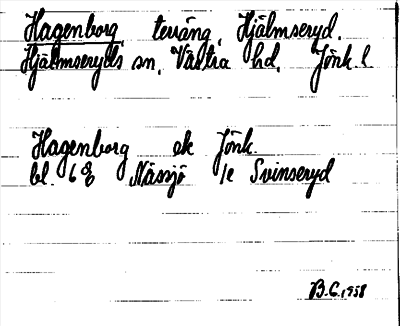 Hagenborg, terräng, Hjälmseryd,
Hjälmseryds sn, Västra hd, Jönk. l.
Hagenborg ek Jönk.
bl. 6 E Nässjö 1e Svinseryd
B.C. 1958